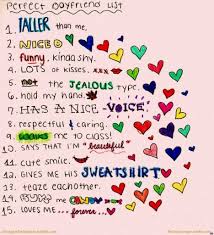 Perfect Boyfriend List
1. TALLER than me.
2. NICE
3. funny, kinda shy.
4. LOTS of kisses.
5. not the JEALOUS type.
6. hold my hand.
7. HAS A NICE VOICE!
8. respectful & caring.
9. me to class!
10. SAYS THAT I'M "beautiful"
11. cute smile.
12. GIVES ME HIS SWEATSHIRT
13. teaze eachother.
14. me
15. loves me ...forever...